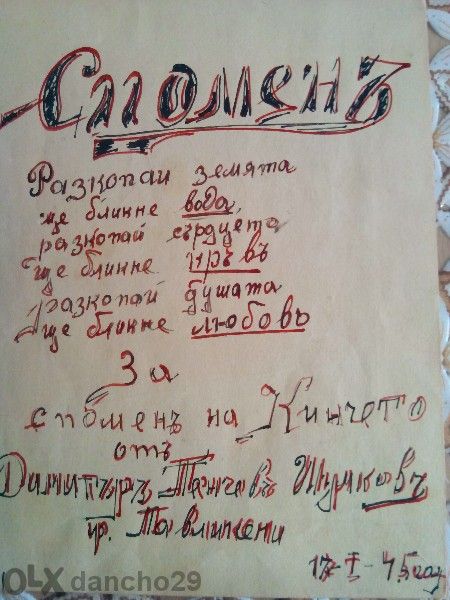 Споменъ
Разкопай земята
ще бликне вода,
разкопай сърдцето
ще бликне кръвъ
разкопай душата
ще бликне любовь
За
споменъ на Кинчето
отъ
Димитъръ Танчевъ
гр. Павликени
OLX dancho29